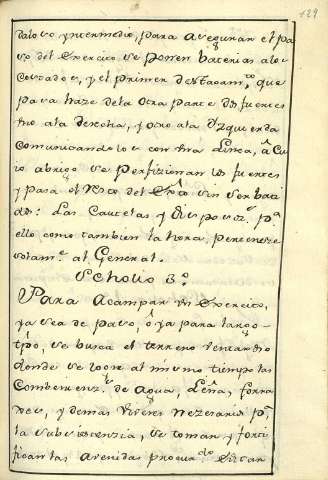 129
dolo yntermedio, para asegurar el pa
so del Exercito se ponen baterias alos
costados, y el primer destacam.to que
pasa haze dela otra parte dos fuertes
uno ala derecha, y otro ala Yzquierda
comunicandolos con una Linea, â Cu
io abrigo se perfizionan los fuertes
y pasa el resto del Ex.to sin ser bati
do: Las Cautelas y disposiz.s p.a
ello como tambien la hora, perteneze
solam.te al General.
Scholio 3.º
Para Acampar un Exercito,
ya sea de paso, ô ya para largo
tpô, se busca el terreno
donde se logre al mismo tiempo las
Combenienz.s de Agua, Leña, forra
xes, y demas Viveres nezesarios p.a
la subsistenzia, se toman y forti
fican las avenidas procur.do